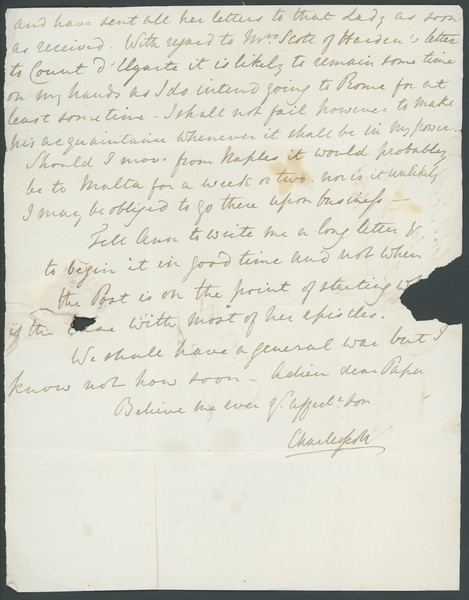 and have sent all her letters to that Lady as soon
as received. With regard to Mrs Scott of Harden's letter
to Count d'Ugarte it is likely to remain some time
on my hands as I do intend going to Rome for at
least some time - I shall not fail however to make
his acquaintance whenever it shall be in my power
Should I move from Naples it would probably
be to Malta for a week or two nor is it unlikely
I may be obliged to go there upon business -
Tell Ann to write me a long letter &
to begin it in good time and not when
the Post is on the point of starting
is the case with most of her epistles.
We shall have a general war but I
know not how soon - Adieu dear Papa
Believe me ever yr affecte son
Charles Scott